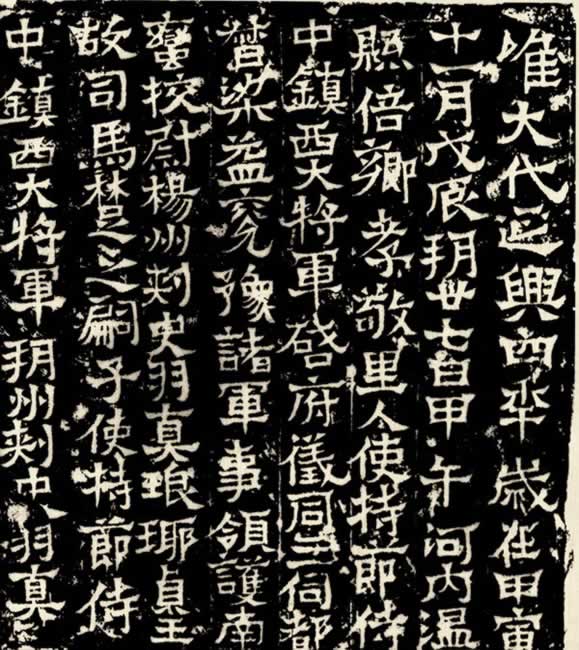 唯大代延興四年歲在甲寅
十一月戊辰朔廿七日甲午河內溫
縣倍鄉孝敬里人使持節侍
中鎮西大將軍啓府儀同三司都
督梁益兗豫諸軍事領護南
蠻挍尉楊州刺史羽真琅琊貞王
故司馬楚之嗣子使持節侍
中鎮西大將軍朔州刺史羽真